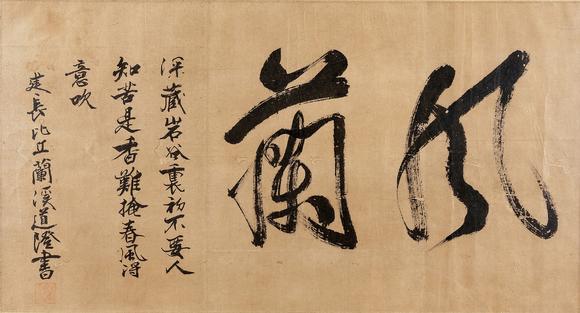 風蘭
深藏岩谷裏初不要人
知苦是香難掩春風得
意吹
建長比丘蘭溪道隆書